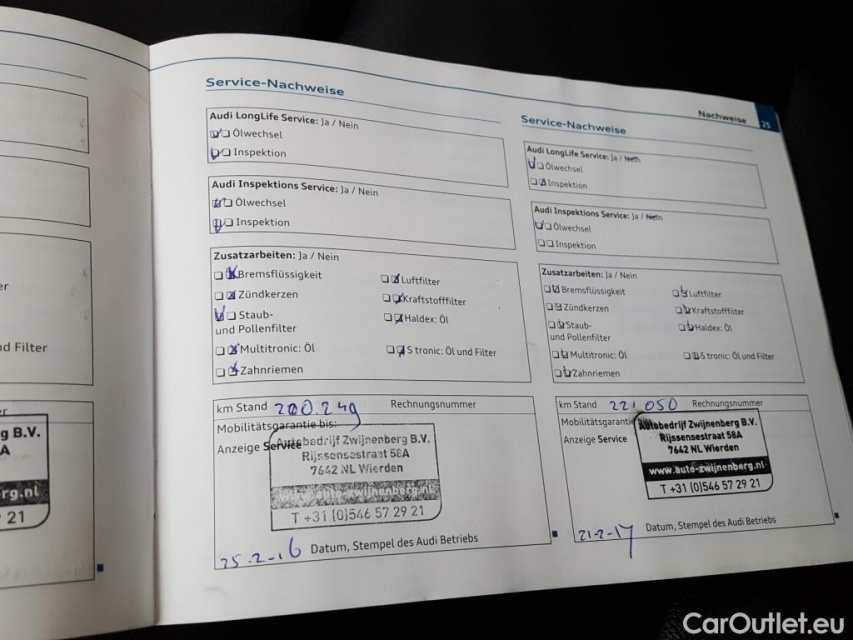 Service-Nachweise
Audi LongLife Service: Ja / Nein
Ölwechsel
Inspektion
Audi Inspektions Service: Ja / Nein
Ölwechsel
Inspektion
Zusatzarbeiten: Ja / Nein
Bremsflüssigkeit
Luftfilter
Zündkerzen
Kraftstofffilter
Staub-
und Pollenfilter
Haldex: Öl
Multitronic: Öl
S tronic: Öl und Filter
Zahnriemen
km Stand 200.249 Rechnungsnummer
Mobilitätsgarantie bis:
Anzeige Service
Autobedrijf Zwijnenberg B.V.
Rijssensestraat 58A
7642 NL Wierden
www.auto-zwijnenberg.nl
T +31 (0)546 57 29 21
25.2-16 Datum, Stempel des Audi Betriebs
Nachweise 25
Service-Nachweise
Audi LongLife Service: Ja / Nein
Ölwechsel
Inspektion
Audi Inspektions Service: Ja / Nein
Ölwechsel
Inspektion
Zusatzarbeiten: Ja / Nein
Bremsflüssigkeit
Luftfilter
Zündkerzen
Kraftstofffilter
Staub-
und Pollenfilter
Haldex: Öl
Multitronic: Öl
S tronic: Öl und Filter
Zahnriemen
km Stand 221.050 Rechnungsnummer
Mobilitätsgarantie
Anzeige Service
Autobedrijf Zwijnenberg B.V.
Rijssensestraat 58A
7642 NL Wierden
www.auto-zwijnenberg.nl
T +31 (0)546 57 29 21
21-2-17 Datum, Stempel des Audi Betriebs
er
nd Filter
er
g B.V.
A
rg.nl
9 21
CarOutlet.eu